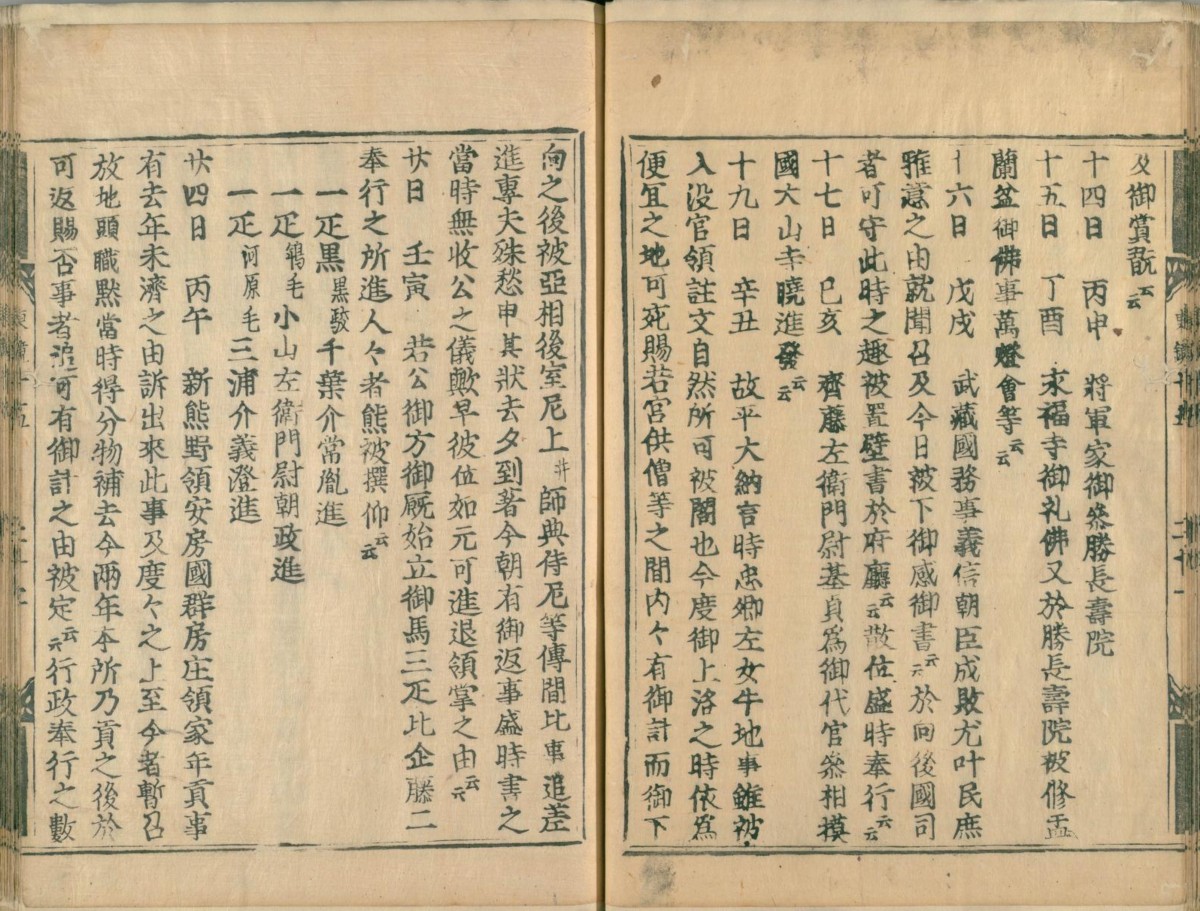 及御賞翫云云
十四日　丙申　将軍家御参勝長壽院
十五日　丁酉　永福寺御礼佛又於勝長壽院被修盂
蘭盆御佛事萬燈會等云云
十六日　戊戌　武藏國務事義信朝臣成敗尤叶民庶
雅意之由就聞召及今日被下御感御書云云於向後國司
者可守此時之趣被置壁書於府廳云云散位盛時奉行云云
十七日　己亥　齊藤左衛門尉基員爲御代官参相摸
國大山寺曉進發云云
十九日　辛丑　故平大納言時忠卿左女牛地事雖被
入没官領註文自然所可被閣也今度御上洛之時依爲
便宜之地可宛賜若宮供僧等之間内々有御計而御下
向之後被亞相後室尼上并師典侍尼等傳聞此事追差
進專夫殊愁申其狀去夕到著今朝有御返事盛時書之
當時無收公之儀歟早彼位如元可進退領掌之由云云
廿日　壬寅　若公御方御厩始立御馬三疋比企藤二
奉行之所進人々者熊被撰仰云云
一疋黒黒駮千葉介常胤進
一疋鴾毛小山左衛門尉朝政進
一疋河原毛三浦介義澄進
廿四日　丙午　新熊野領安房國群房庄領家年貢事
有去年未濟之由訴出來此事及度々之上至今者暫召
放地頭職黙當時得分物補去今兩年本所乃貢之後於
可返賜否事者追可有御計之由被定云云行政奉行之數